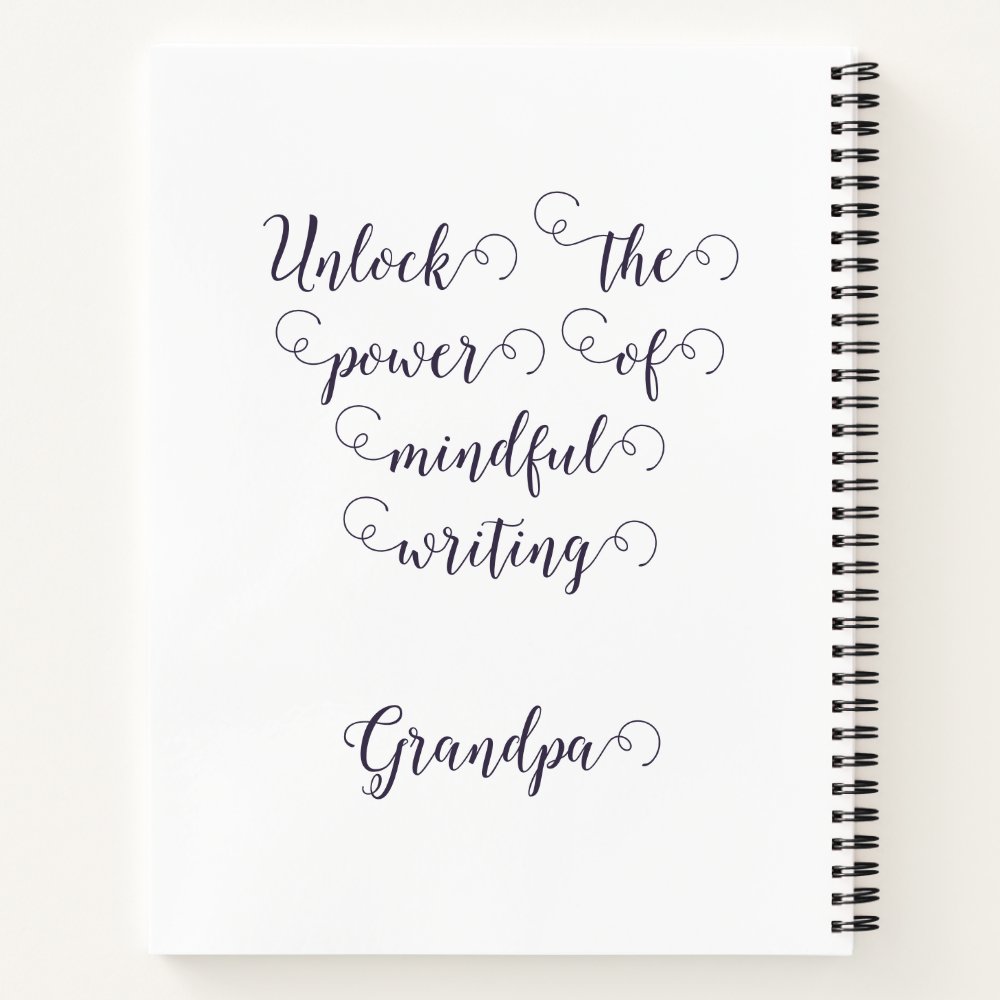 Unlock the
power of
mindful
writing
Grandpa